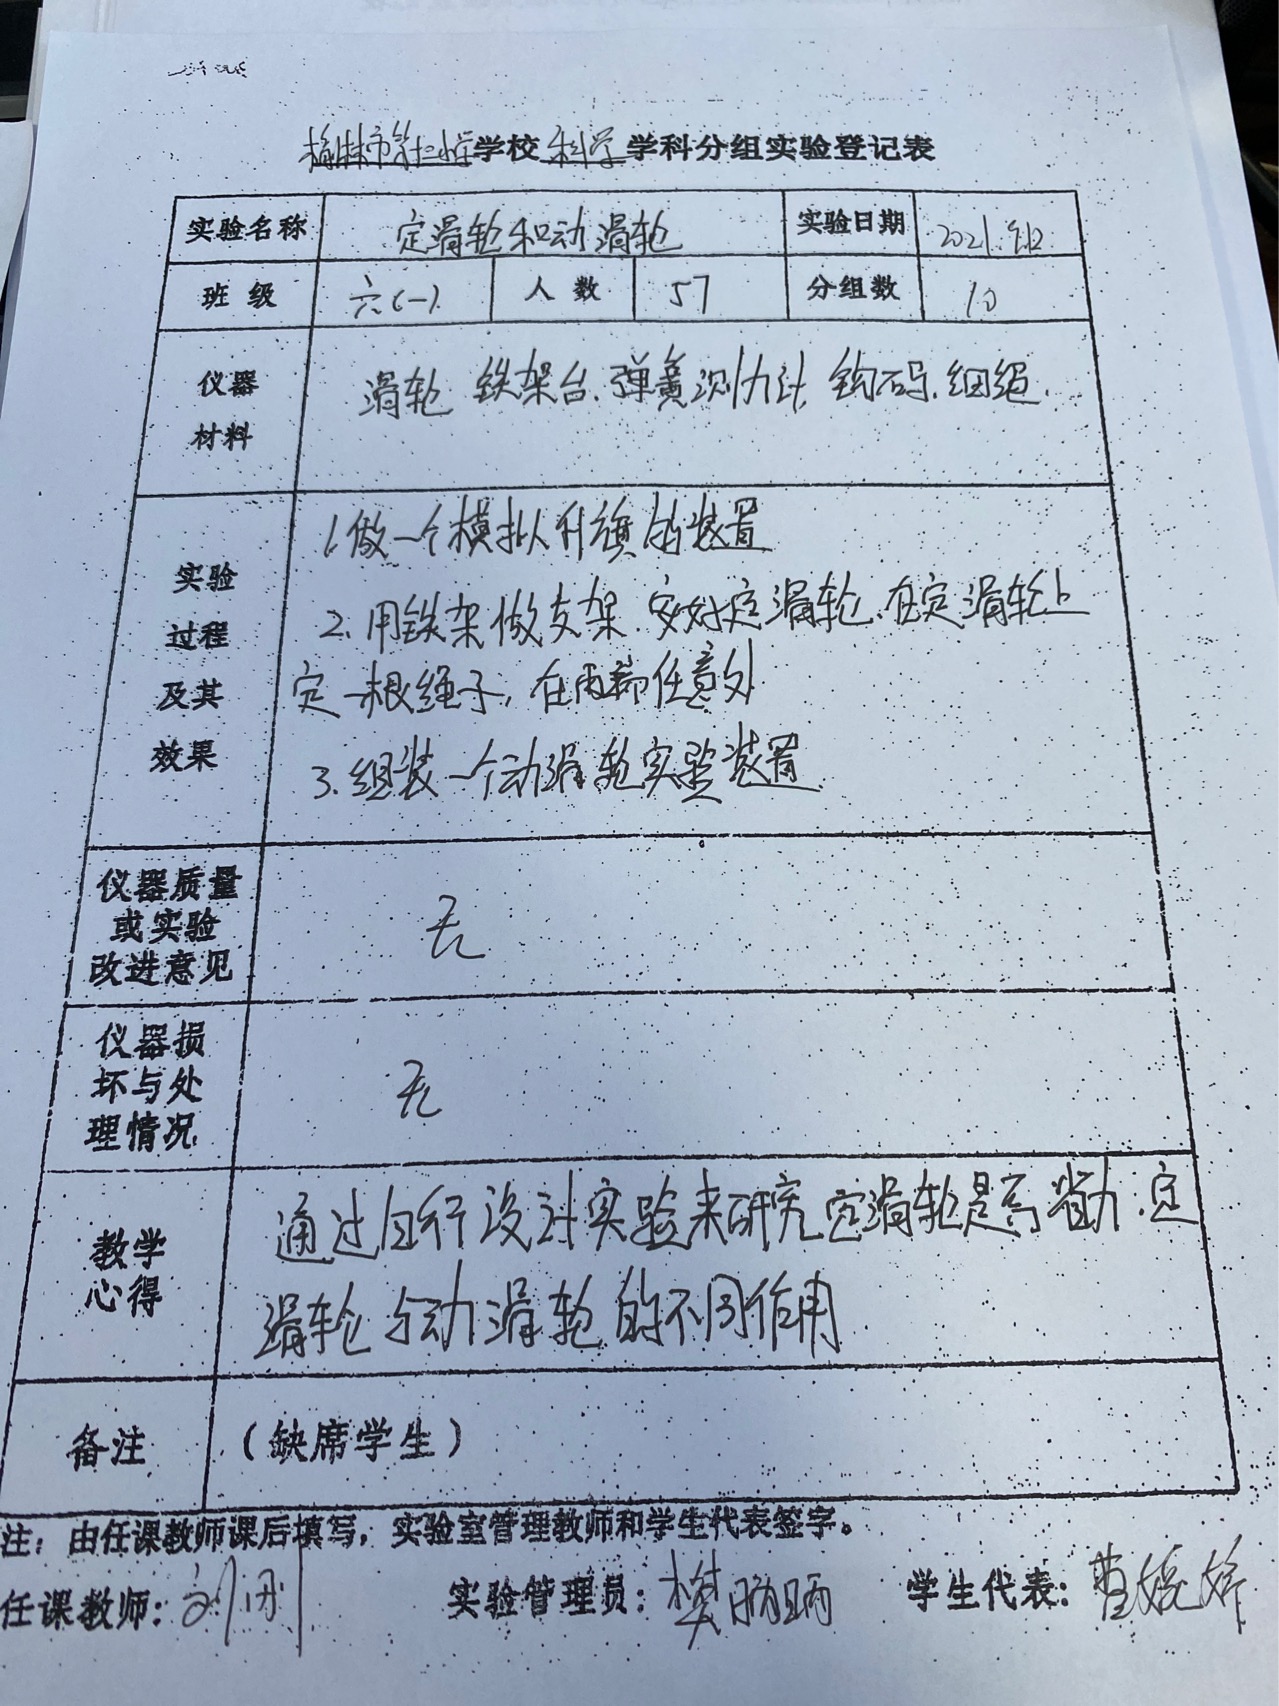 榆林市第十二小学学校 科学 学科分组实验登记表
实验名称 定滑轮和动滑轮 实验日期 2021.9.12
班 级 六(一) 人 数 57 分组数 10
仪器
材料
滑轮 铁架台、弹簧测力计、钩码、细绳.
实验
过程
及其
效果
1.做一个模拟升旗的装置
2.用铁架做支架.安好定滑轮.在定滑轮上
定一根绳子,在两
任意
3.组装一个动滑轮实验装置.
仪器质量
或实验
改进意见
无
仪器损
坏与处
理情况
无
教学
心得
通过自行设计实验来研究定滑轮是否省力.定
滑轮与动滑轮的不同作用
备注 (缺席学生)
注:由任课教师课后填写,实验室管理教师和学生代表签字。
任课教师: 实验管理员: 学生代表: